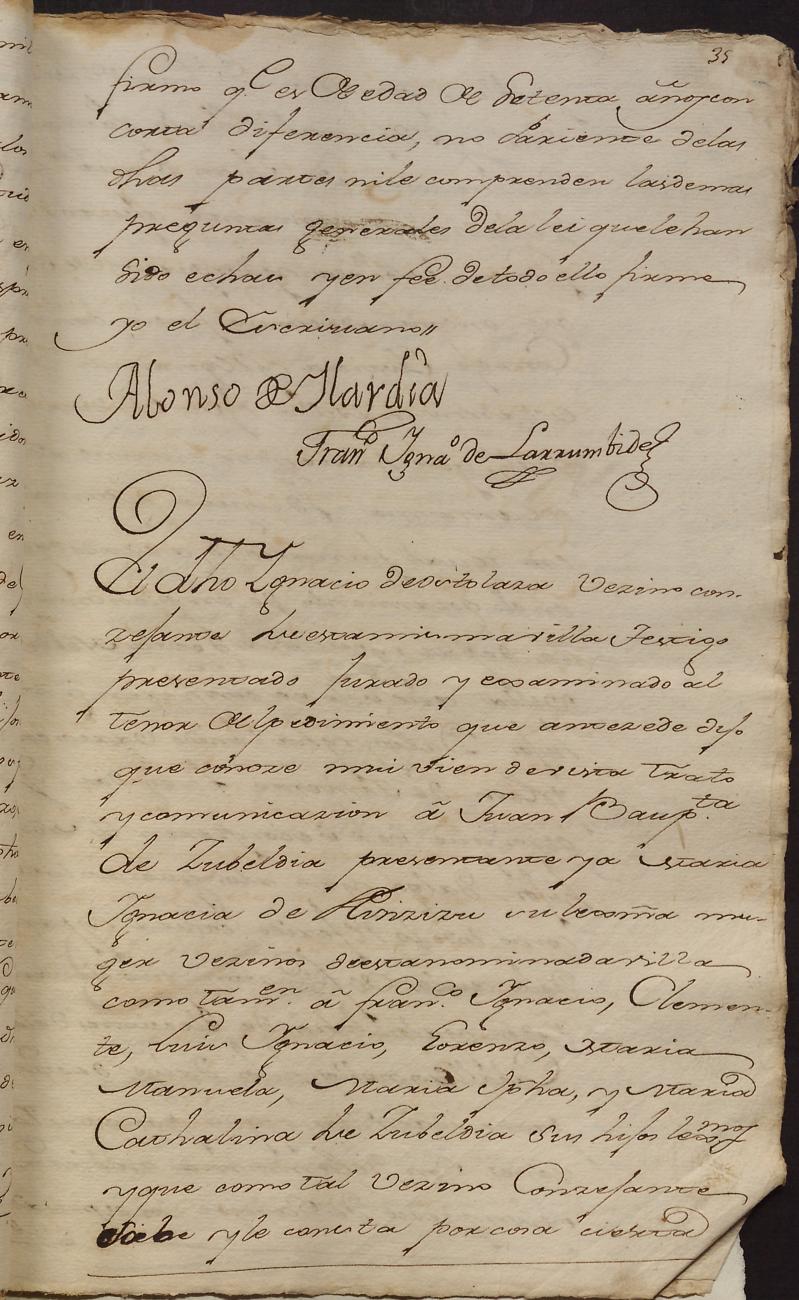 35
firmo q.e es de edad de setenta años con
corta diferencia, no Pariente delas
dhas partes nile comprenden lasdemas
preguntas generales dela lei quelehan
sido echas yen feé detodo ello firme
yo el Escrivano //
Alonso de Ilardia
Fran.co Igna.o de Larrumbide
El dho Ignacio deostolaza Vezino con-
zejante de esta misma villa Testigo
presentado Jurado y examinado al
tenor del pedimiento que antezede dijo
que conoze mui vien devista trato
ycomunicazion â Juan Baup.ta
de Zubeldia presentante ya Maria
Ignacia de su lexma mu-
ger vezinos deestanominadavilla
como tam.en â fran.co Ignacio, Clemen-
te, Luis Ignacio, Lorenzo, Maria
Manuela, Maria Jpha, y Maria
Cathalina de Zubeldia sus hijos lex.mos
yque como tal vezino Conzejante
Save yle consta por cosa cierta